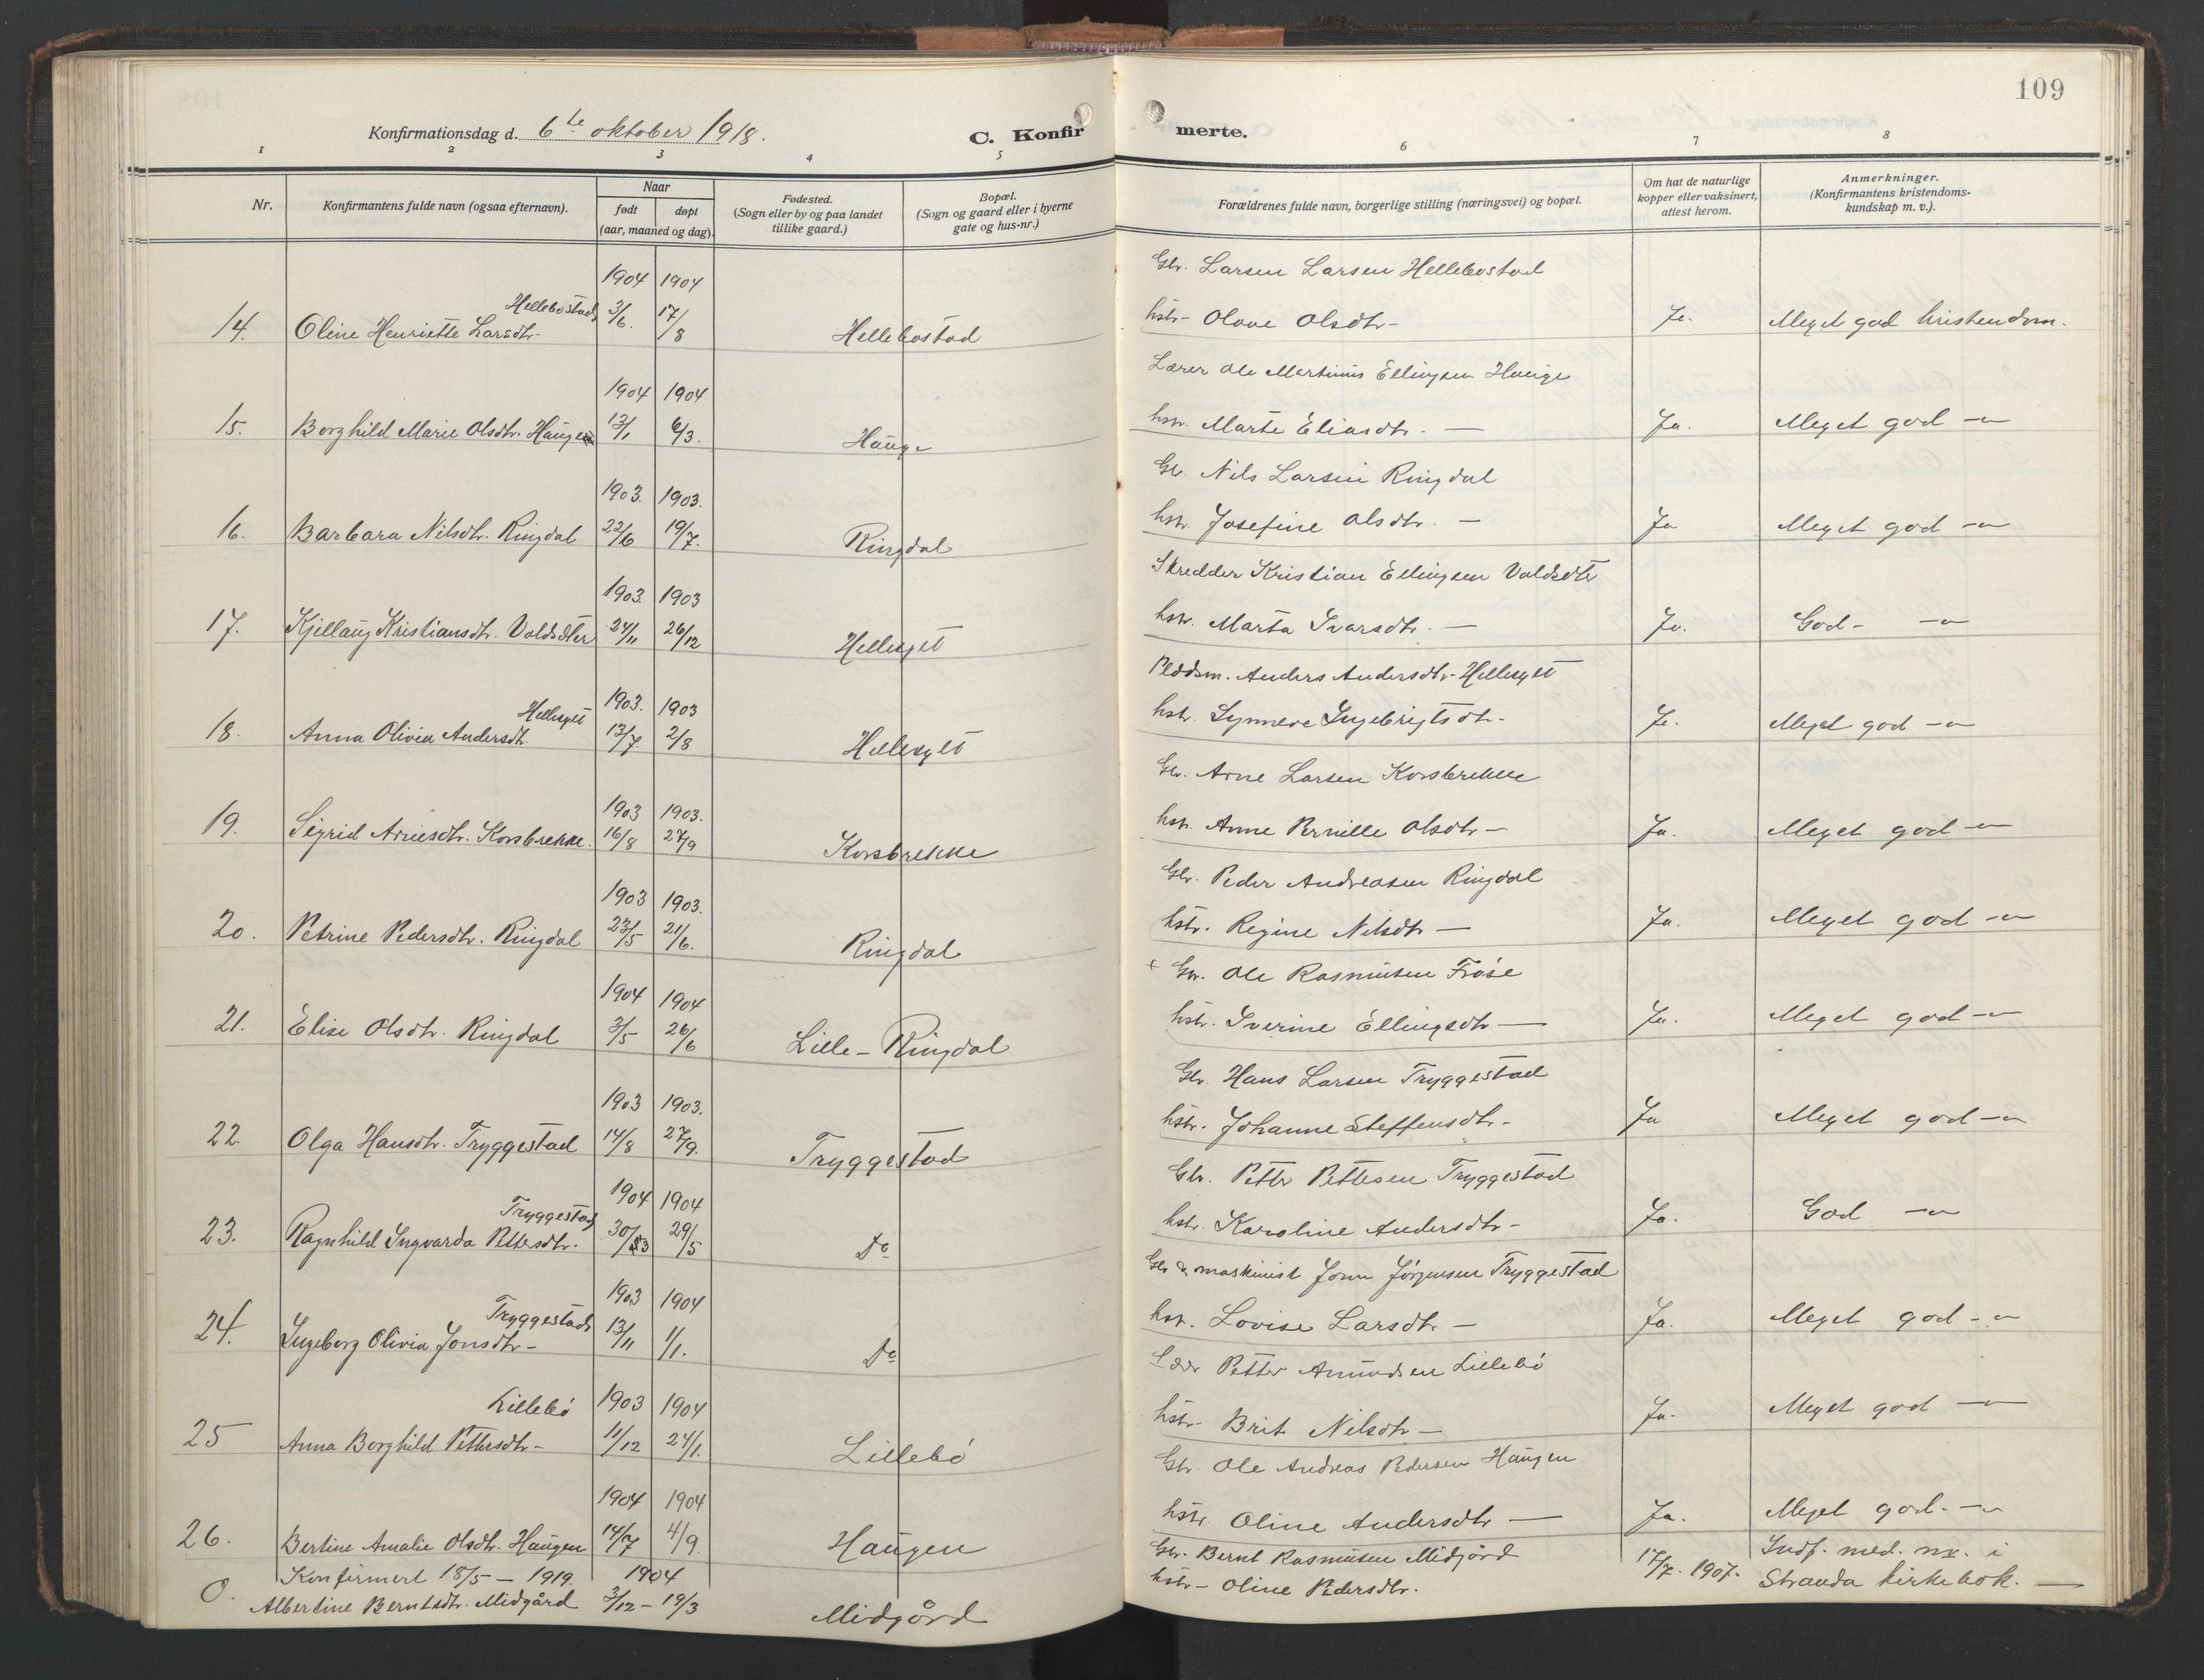 109
Konfirmationsdag d. 6te oktober 1918.
C. Konfirmerte.
1 2 3 4 5 6 7 8
Nr.
Konfirmantens fulde navn (ogsaa efternavn).
Naar
født døpt
(aar, maaned og dag).
Fødested.
(Sogn eller by og paa landet
tillike gaard.)
Bopæl.
(Sogn og gaard eller i byerne
gate og hus-nr.)
Forældrenes fulde navn, borgerlige stilling (næringsvei) og bopæl.
Om hat de naturlige
kopper eller vaksinert,
attest herom.
Anmerkninger.
(Konfirmantens kristendoms-
kundskap m. v.).
1904 1904 Gbr. Larsen Larsen Hellebostad
Hellebostad
14. Oline Henriette Larsdtr. 3/6. 17/8 Hellebostad hstr. Olave Olsdtr - Ja. Meget god kristendom.
1904 1904 Lærer Ole Martinus Ellingsen Hauge
15. Borghild Marie Olsdtr. Hauge 13/1 6/3. Hauge hstr. Marte Eliasdtr. — Ja. Meget god —"—
1903. 1903. Gbr. Nils Larsen Ringdal
16. Barbara Nilsdtr. Ringdal 22/6 19/7. Ringdal hstr. Josefine Olsdtr. — Ja Meget god —"—
1903. 1903 Skredder Kristian Ellingsen Valdsæter
17. Kjellaug Kristiansdtr. Valdsæter 24/11 26/12 Hellesylt hstr. Marta Ivarsdtr. — Ja. God - —"—
1903. 1903 Pladsm. Anders Andersdtr. Hellesylt
Hellesylt
18. Anna Olivia Andersdtr. 13/7. 2/8 Hellesylt hstr. Synneve Ingebrigtsdtr - Ja. Meget god —"—
1903 1903. Gbr. Arne Larsen Korsbrekke
19. Sigrid Arnesdtr. Korsbrekke. 16/8 27/9 Korsbrekke hstr. Anne Pernille Olsdtr — Ja. Meget god —"—
1903 1903. Gbr. Peder Andreasen Ringdal
20. Petrine Pedersdtr. Ringdal 23/5 21/6. Ringdal hstr. Regine Nilsdtr — Ja. Meget god —"—
1904 1904 + Gbr. Ole Rasmusen Frøse
21. Elise Olsdtr. Ringdal 3/5 26/6 Lille-Ringdal hstr. Iverine Ellingsdtr — Ja. Meget god —"—
1903 1903. Gbr. Hans Larsen Tryggestad
22. Olga Hansdtr. Tryggestad 14/8 27/9. Tryggestad hstr. Johanne Steffensdtr. - Ja Meget god —"—
1904 1904 Gbr. Petter Pettersen Tryggestad
Tryggestad
23. Ragnhild Ingvarda Pettersdtr. 30/3 29/5 Do hstr. Karoline Andersdtr - Ja. God —"—
1903 1904 Gbr & maskinist Jonn Jørgensen Tryggestad
Tryggestad
24. Ingeborg Olivia Jonsdtr - 13/11 1/1. Do hstr. Lovise Larsdtr. — Ja. Meget god —"—
1903 1904 Petter Amundsen Lillebö
Lillebö
25 Anna Borghild Pettersdtr - 11/12 24/1. Lillebö hstr. Brit Nilsdtr — Ja. Meget god —"—
1904 1904 Gbr. Ole Andreas Pedersen Haugen
26. Bertine Amalie Olsdtr. Haugen 14/7 4/9. Haugen hstr. Oline Andersdtr — Ja. Meget god. —"—
Konfirmert 18/5 — 1919. 1904 Gbr. Bernt Rasmusen Midgård 17/7. 1907. Indf. med. nr. i
0. Albertine Berntsdtr. Midgård 3/12 - 19/3 Midgård hstr - Oline Pedersdtr. Stranda kirkebok. —